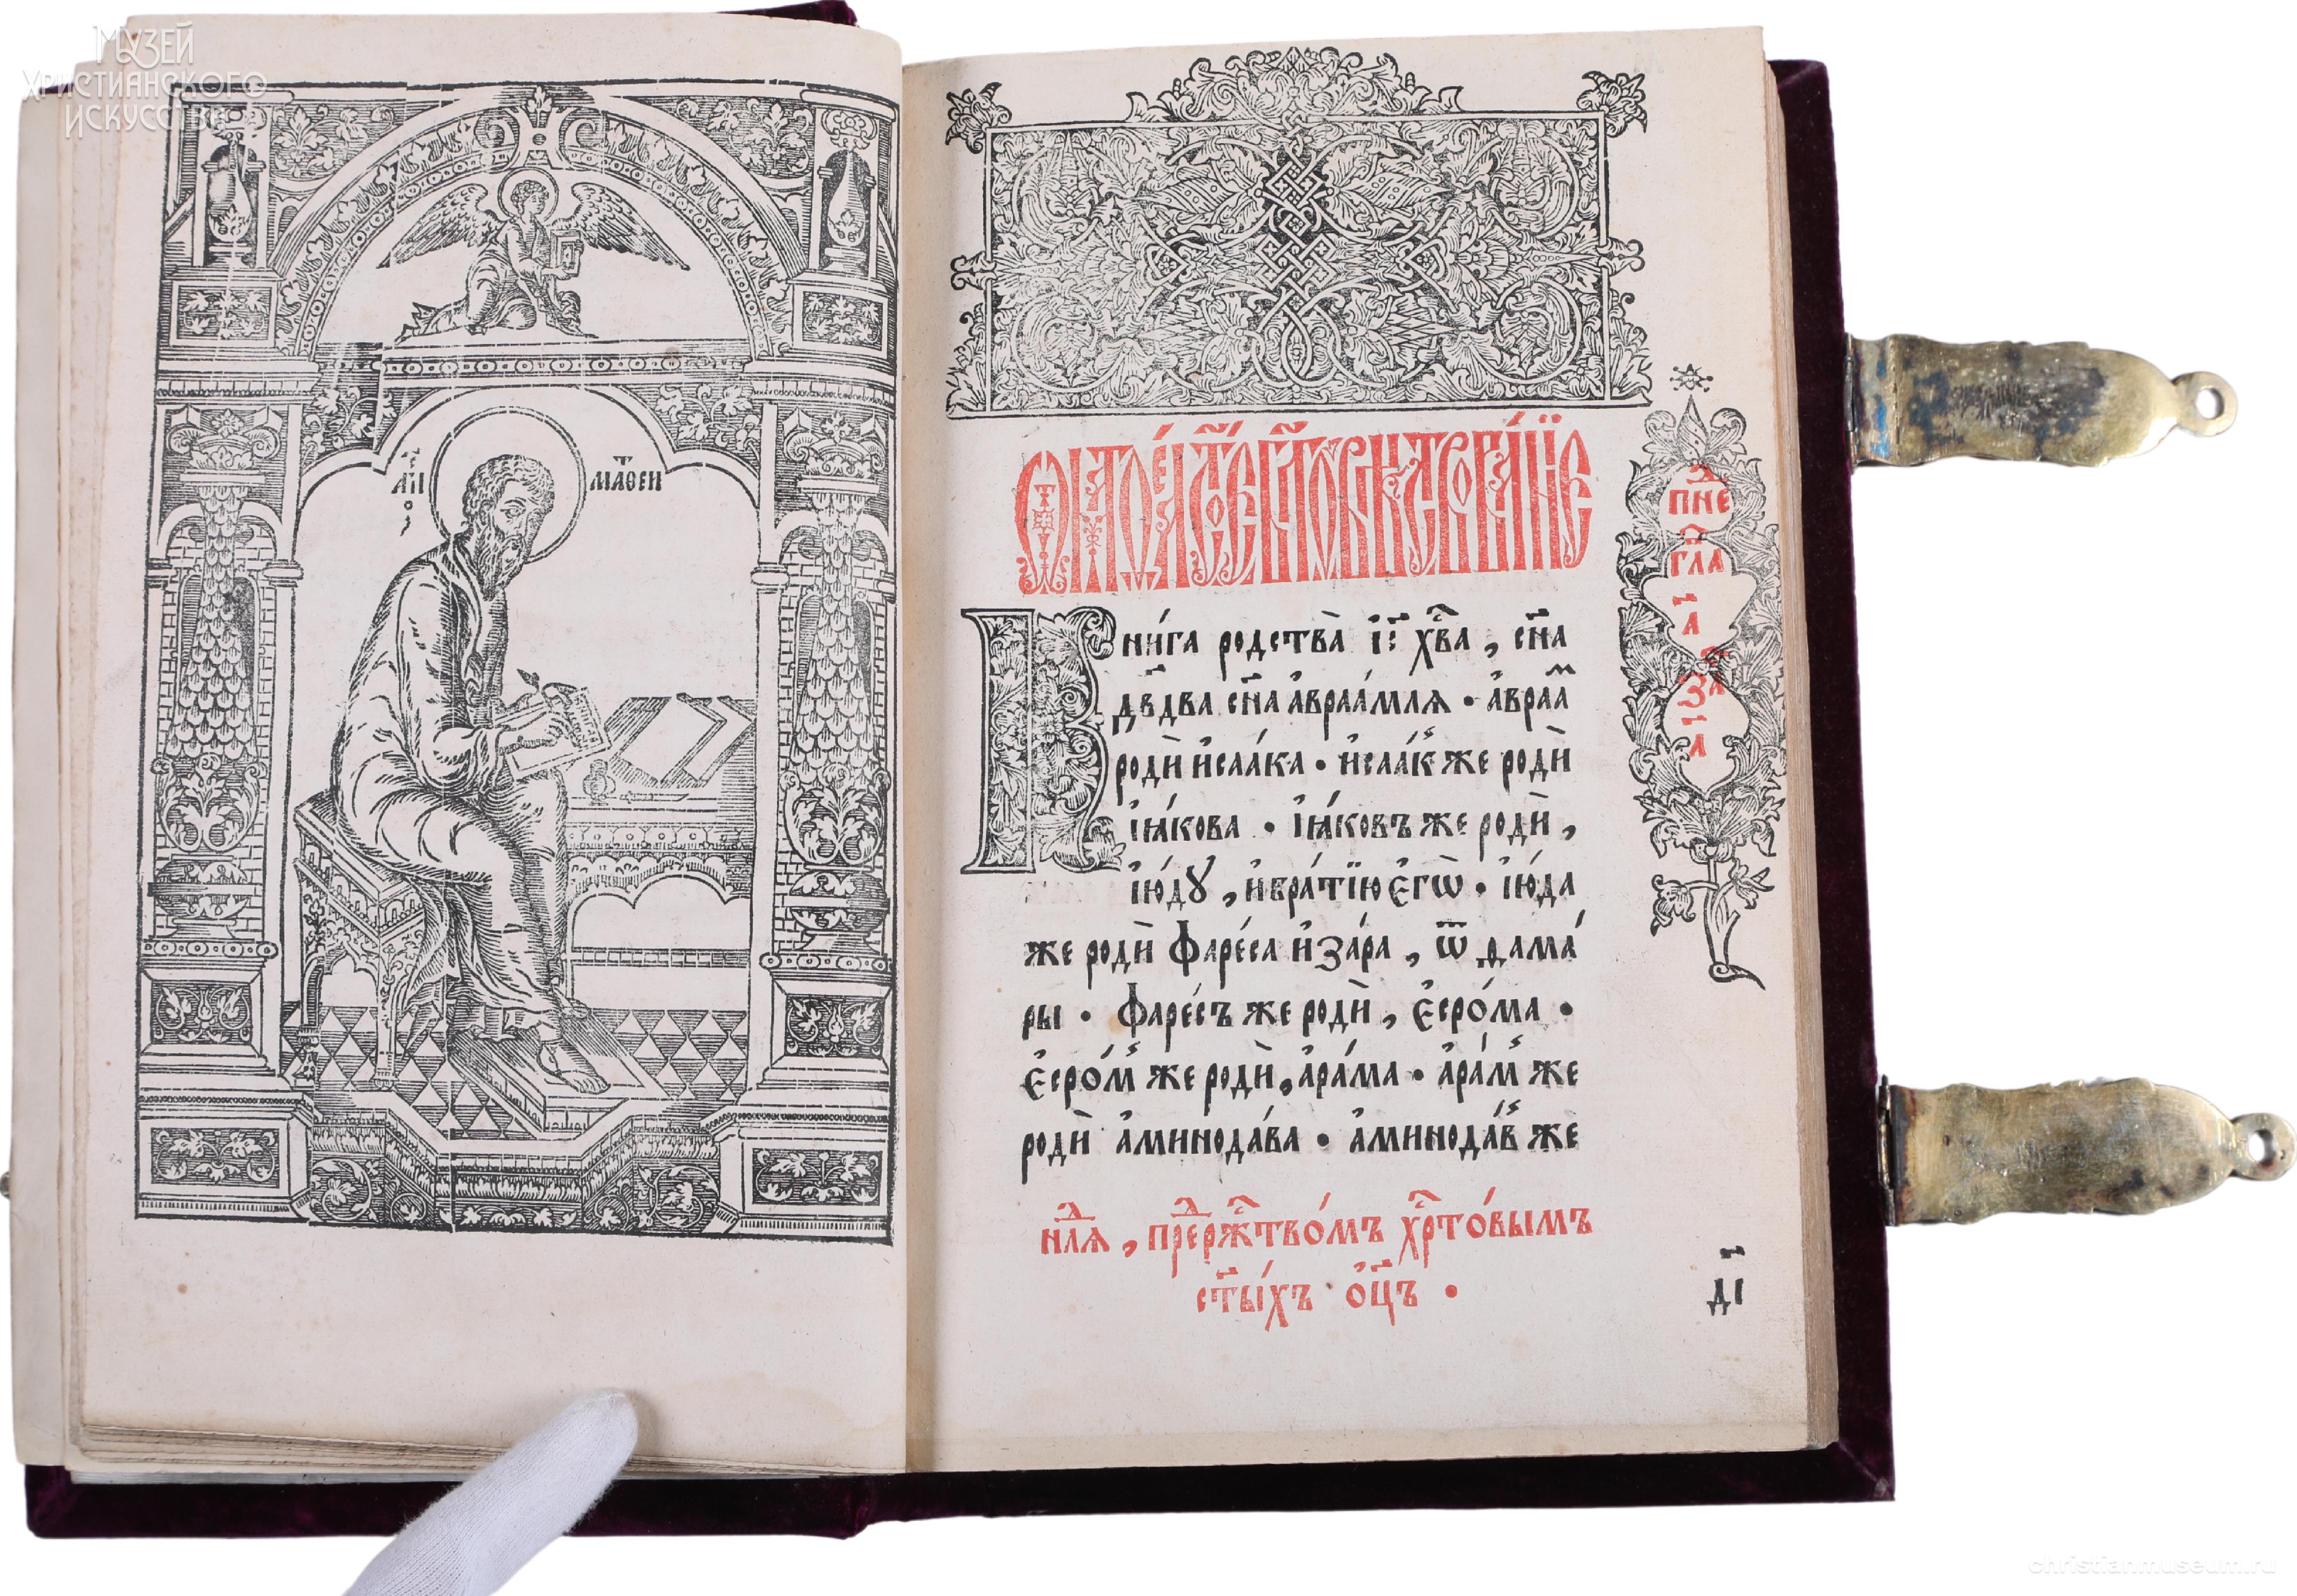 МУЗЕЙ
ХРИСТИАНСКОГО
ИСКУССТВА
а҆п҇о҇с
маѳе҇и
Ѿ мат҇ѳе́а ст҃о́е бл҃говѣствова́нїе
Кни́га родства̀ і҆и҃с хв҃а , сн҃а
дв҃два сн҃а а҆враа́мля · а҆враа́м
родѝ и҆саа́ка · и҆саа́к же родѝ
і҆а́кова · і҆а́ковъ же родѝ ,
і҆ю́дꙋ , и҆ бра́тїю є҆гѡ̀ · і҆ю́да
же родѝ фаре́са и҆ за́ра , ѿ дама́
ры · фаре́съ же родѝ , є҆сро́ма ·
є҆сро́м же родѝ , а҆ра́ма · а҆ра́м же
родѝ а҆минода́ва · а҆минода́в же
нⷣля , преⷣ рж҇тво́мъ хр҇то́вымъ
ст҃ы́хъ о҆ц҃ъ ·
пнⷣе
гла
а҃
за
а҃
д҃і
christianmuseum.ru